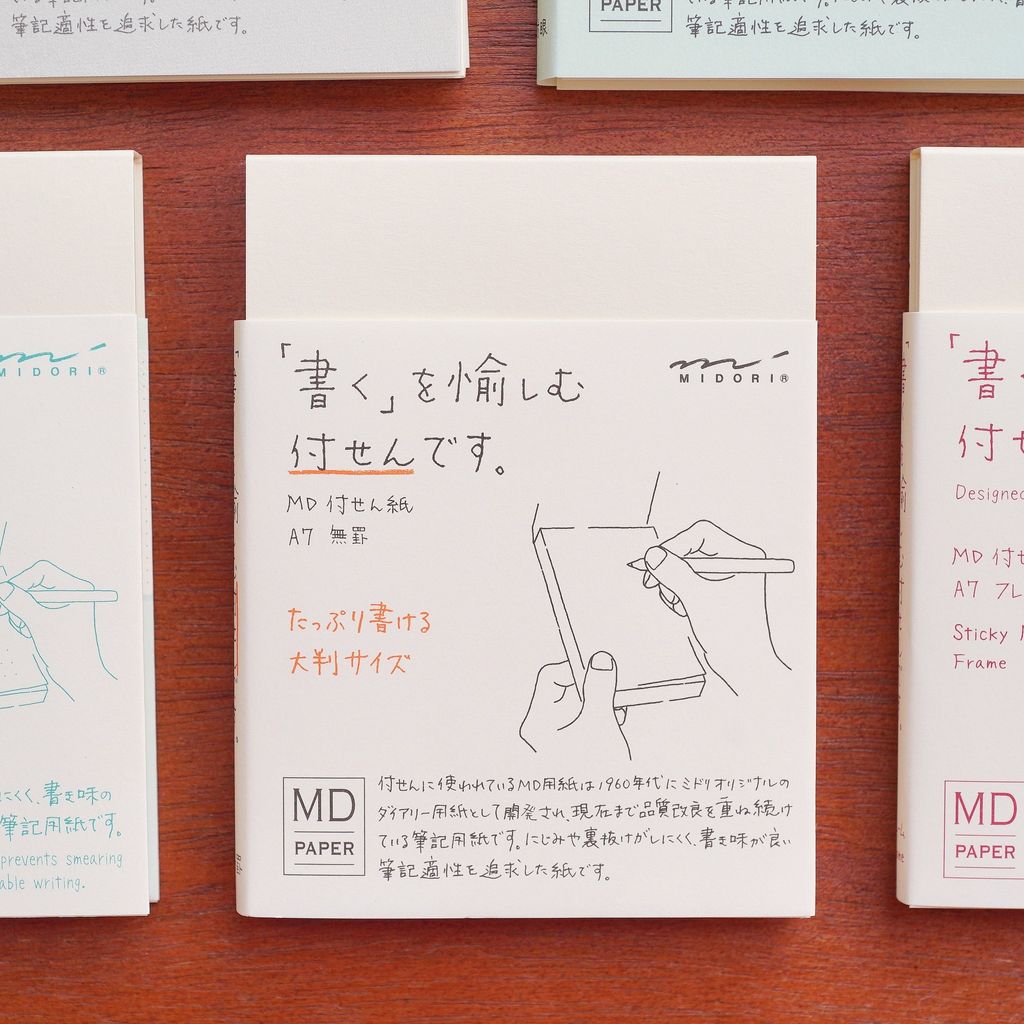 筆記適性を追求した紙です。
PAPER
筆記適性を追求した紙です。
MIDORI®
にくく、書き味の
筆記用紙です。
prevents smearing
able writing.
「書く」を愉しむ
付せんです。
MIDORI®
MD 付せん紙
A7 無罫
たっぷり書ける
大判サイズ
MD
PAPER
付せんに使われているMD用紙は1960年代にミドリオリジナルの
ダイアリー用紙として開発され、現在まで品質改良を重ね続け
ている筆記用紙です。にじみや裏抜けがしにくく、書き味が良い
筆記適性を追求した紙です。
「書く
付せ
Designed
MD 付せ
A7 フレ
Sticky
Frame
MD
PAPER